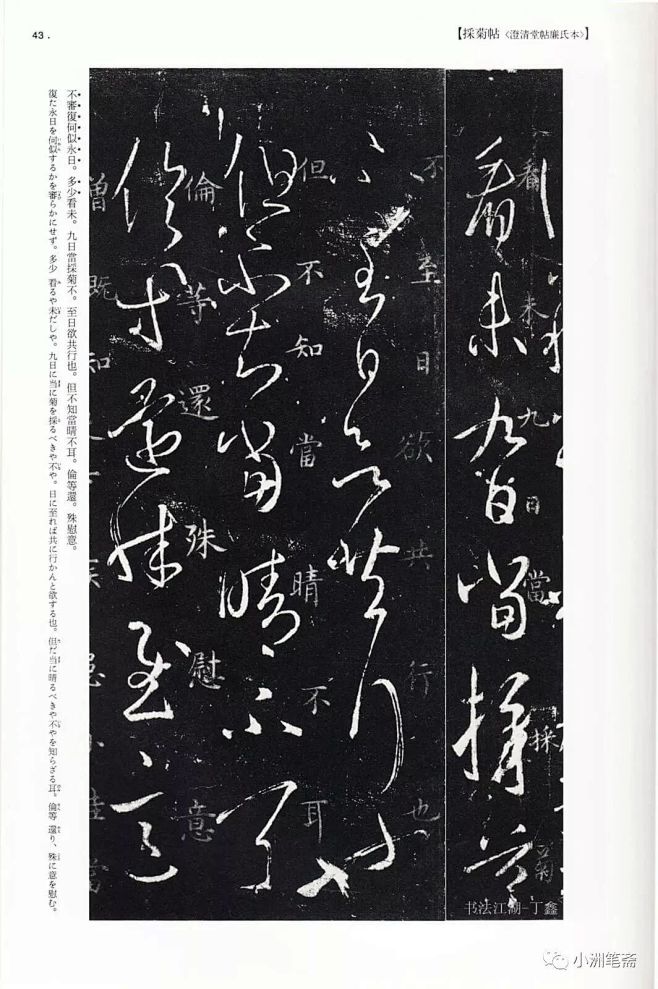 43.
【採菊帖〈澄清堂帖廉氏本〉】
看未九日當採菊
看未九日當採菊
不至日欲共行也
不至日欲共行也
但不知當晴不耳
但不知當晴不耳
倫等還殊慰意
倫等還殊慰意
不審復何似永日。多少看未。九日當採菊不。至日欲共行也。但不知當晴不耳。倫等還。殊慰意。
復た永日を何似するかを審らかにせず。多少 看るや未だしや。九日に当に菊を採るべきや不や。日に至れば共に行かんと欲する也。但だ当に晴るべきや不やを知らざる耳。倫等 還り、殊に意を慰む。
书法江湖-丁鑫
小洲笔斋